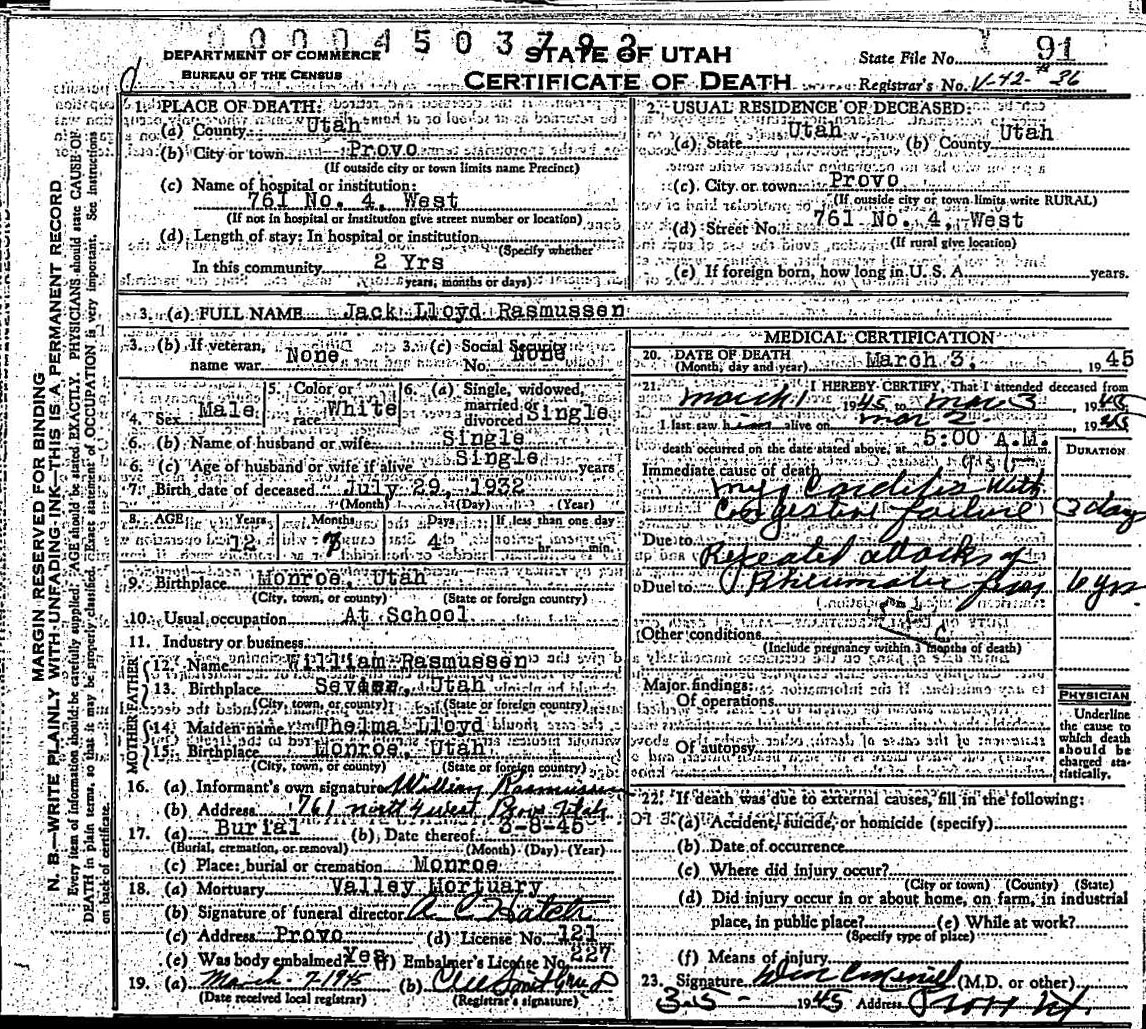 00004503792
DEPARTMENT OF COMMERCE
BUREAU OF THE CENSUS
STATE OF UTAH
CERTIFICATE OF DEATH
State File No. 91
Registrar's No. V-42-#36
MARGIN RESERVED FOR BINDING
N. B.—WRITE PLAINLY WITH UNFADING INK—THIS IS A PERMANENT RECORD
Every item of information should be carefully supplied. AGE should be stated EXACTLY. PHYSICIANS should state CAUSE OF
DEATH in plain terms, so that it may be properly classified. Exact statement of OCCUPATION is very important. See instructions
on back of certificate.
1. PLACE OF DEATH:
(a) County Utah
(b) City or town Provo
(If outside city or town limits name Precinct)
(c) Name of hospital or institution:
761 No. 4, West
(If not in hospital or institution give street number or location)
(d) Length of stay: In hospital or institution
(Specify whether
In this community 2 Yrs
years, months or days)
2. USUAL RESIDENCE OF DECEASED:
(a) State Utah (b) County Utah
(c) City or town Provo
(If outside city or town limits write RURAL)
(d) Street No. 761 No. 4, West
(If rural give location)
(e) If foreign born, how long in U. S. A. years.
3. (a) FULL NAME Jack Lloyd Rasmussen
3. (b) If veteran, name war None
3. (c) Social Security No. None
4. Sex Male
5. Color or race White
6. (a) Single, widowed, married or divorced Single
6. (b) Name of husband or wife Single
6. (c) Age of husband or wife if alive Single years
7. Birth date of deceased July 29, 1932
(Month) (Day) (Year)
8. AGE Years Months Days If less than one day
12 7 4 hr. min.
9. Birthplace Monroe, Utah
(City, town, or county) (State or foreign country)
10. Usual occupation At School
11. Industry or business
FATHER
12. Name William Rasmussen
13. Birthplace Sevier, Utah
(City, town, or county) (State or foreign country)
MOTHER
14. Maiden name Thelma Lloyd
15. Birthplace Monroe, Utah
(City, town, or county) (State or foreign country)
16. (a) Informant's own signature William Rasmussen
(b) Address 761 north 4 west Provo Utah
17. (a) Burial (b) Date thereof 3-8-45
(Burial, cremation, or removal) (Month) (Day) (Year)
(c) Place: burial or cremation Monroe
18. (a) Mortuary Valley Mortuary
(b) Signature of funeral director A. C. Hatch
(c) Address Provo (d) License No. 121
(e) Was body embalmed? Yes (f) Embalmer's License No. 227
19. (a) March-7-1945 (b)
(Date received local registrar) (Registrar's signature)
MEDICAL CERTIFICATION
20. DATE OF DEATH March 3, 1945
(Month, day and year)
21. I HEREBY CERTIFY, That I attended deceased from
March 1 1945 to Mar 3, 1945
I last saw him alive on Mar 2 1945
death occurred on the date stated above, at 5:00 A.M. m.
DURATION
Immediate cause of death
Myo Carditis with
Congestive failure 3 day
Due to Repeated attacks of
Due to Rheumatic fever 6 yrs
Other conditions
(Include pregnancy within 3 months of death)
Major findings:
Of operations
Of autopsy
PHYSICIAN
Underline
the cause to
which death
should be
charged sta-
tistically.
22. If death was due to external causes, fill in the following:
(a) Accident, suicide, or homicide (specify)
(b) Date of occurrence
(c) Where did injury occur?
(City or town) (County) (State)
(d) Did injury occur in or about home, on farm, in industrial
place, in public place? (e) While at work?
(Specify type of place)
(f) Means of injury
23. Signature (M.D. or other)
3-5- 1945 Address Provo Ut.